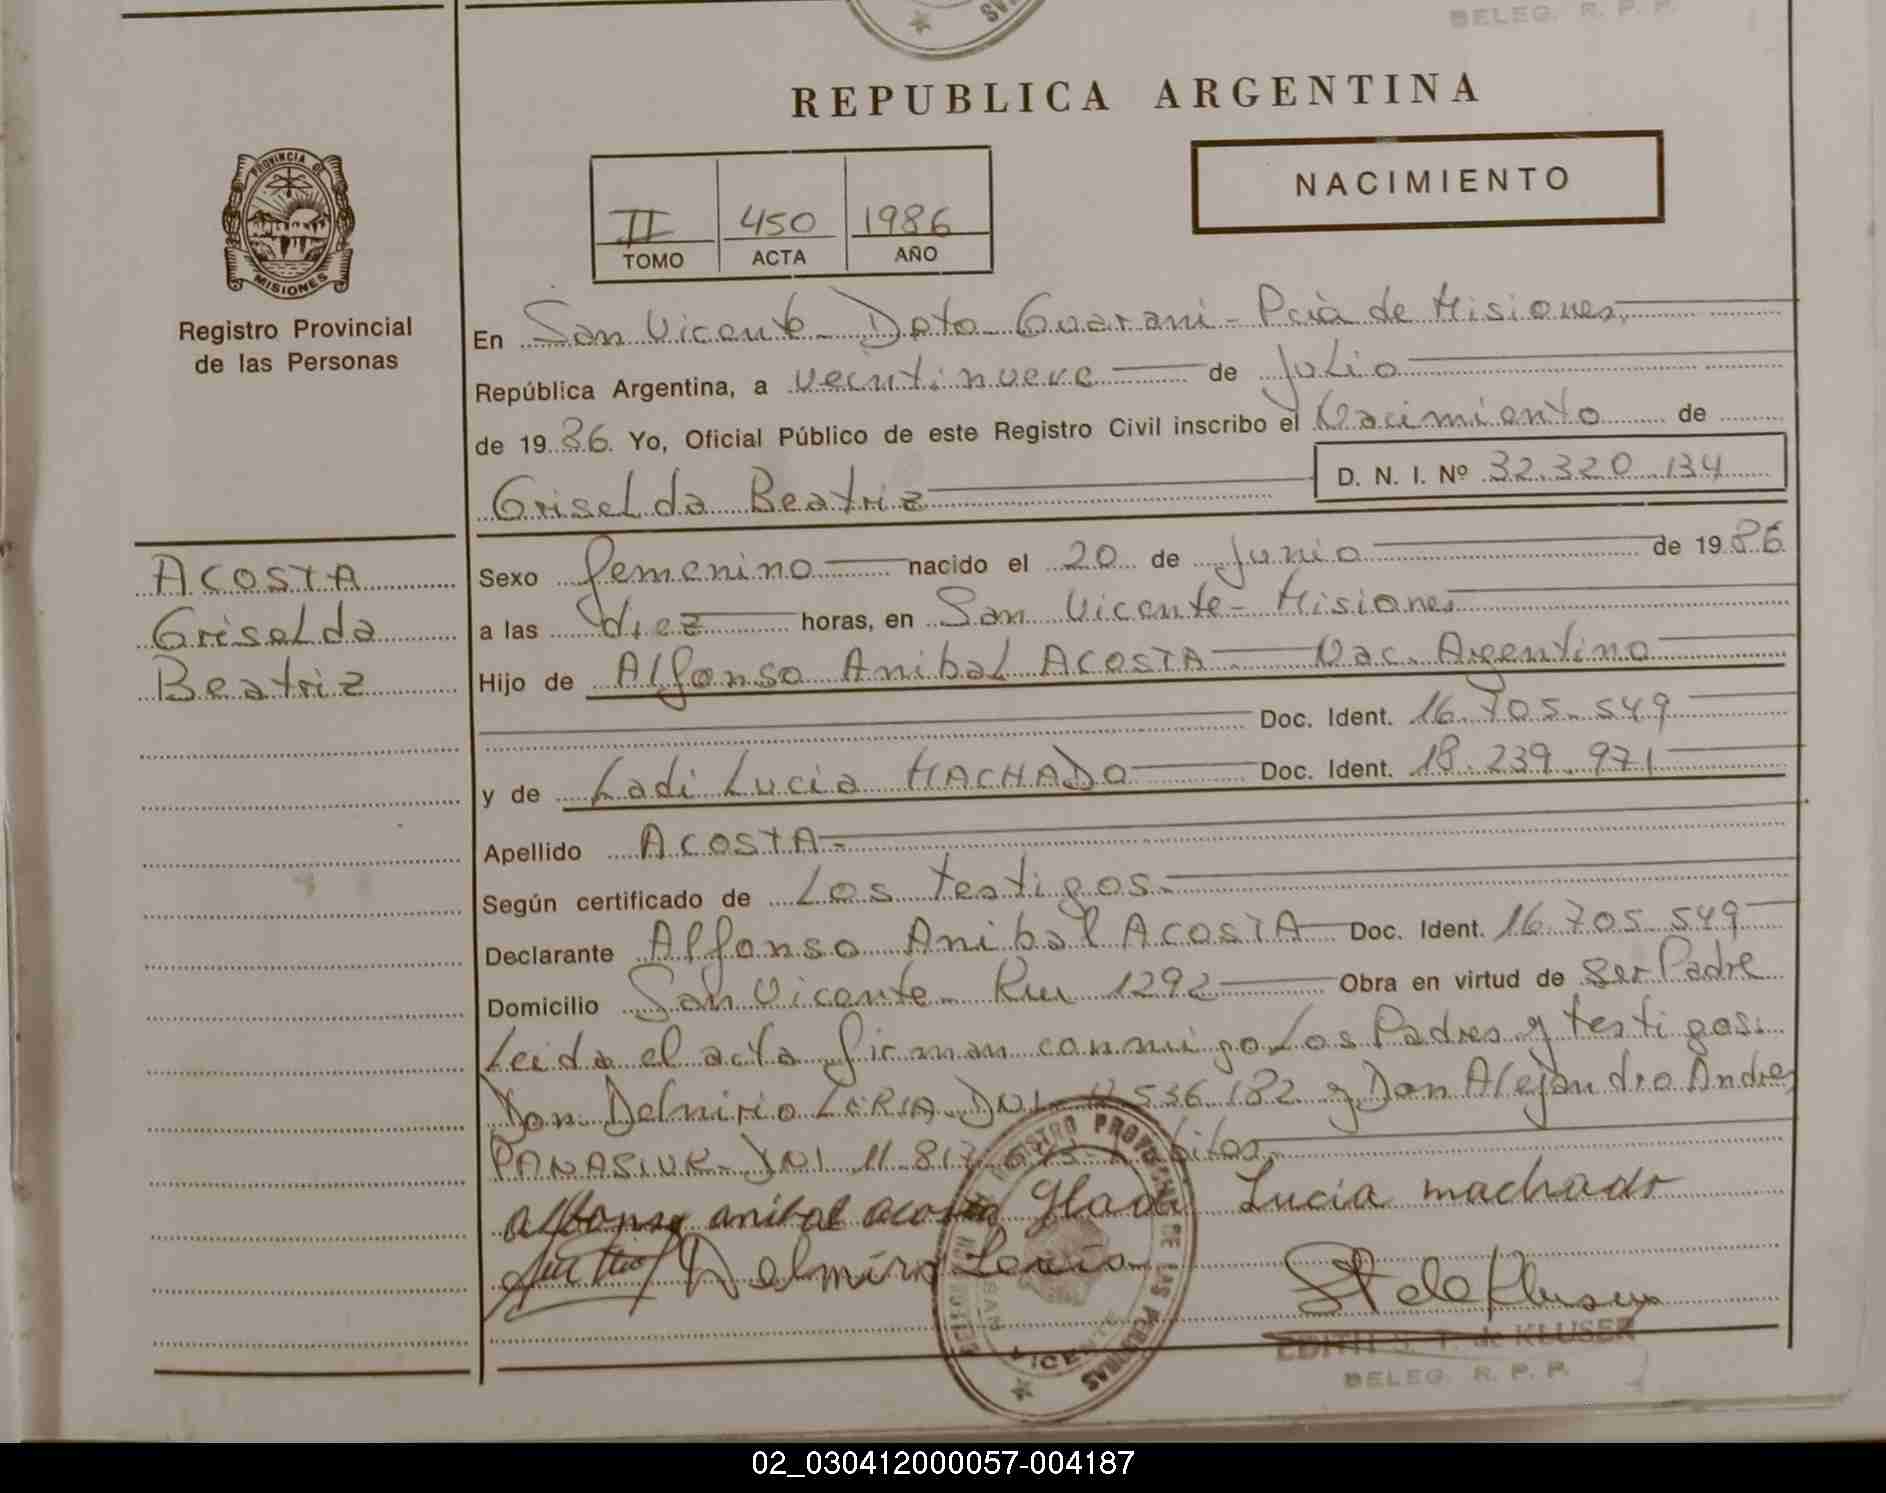 BELEG. R. P. P.
REPUBLICA ARGENTINA
PROVINCIA DE
MISIONES
Registro Provincial
de las Personas
II 450 1986
TOMO ACTA AÑO
NACIMIENTO
En San Vicente Dpto Guarani - Pcia de Misiones,
República Argentina, a veintinueve de Julio
de 19 86. Yo, Oficial Público de este Registro Civil inscribo el Nacimiento de
Griselda Beatriz
D. N. I. Nº 32.320.134
ACOSTA
Griselda
Beatriz
Sexo femenino nacido el 20 de Junio de 19 86
a las diez horas, en San Vicente - Misiones
Hijo de Alfonso Anibal ACOSTA - Nac. Argentino
Doc. Ident. 16.705.549
y de Ladi Lucia MACHADO Doc. Ident. 18.239.971
Apellido ACOSTA
Según certificado de Los testigos
Declarante Alfonso Anibal ACOSTA Doc. Ident. 16.705.549
Domicilio San Vicente Km 1292 Obra en virtud de ser Padre
Leida el acta firman conmigo Los Padres y testigos:
Don Delmirio DNI 536.182 y Don Alejandro Andres
PANASIUK DNI 11.817
alfonso anibal acosta Lucia machado
Delmiro
REGISTRO PROVINCIAL DE LAS PERSONAS
EDITH S. T. de KLUSER
BELEG. R. P. P.
02_030412000057-004187